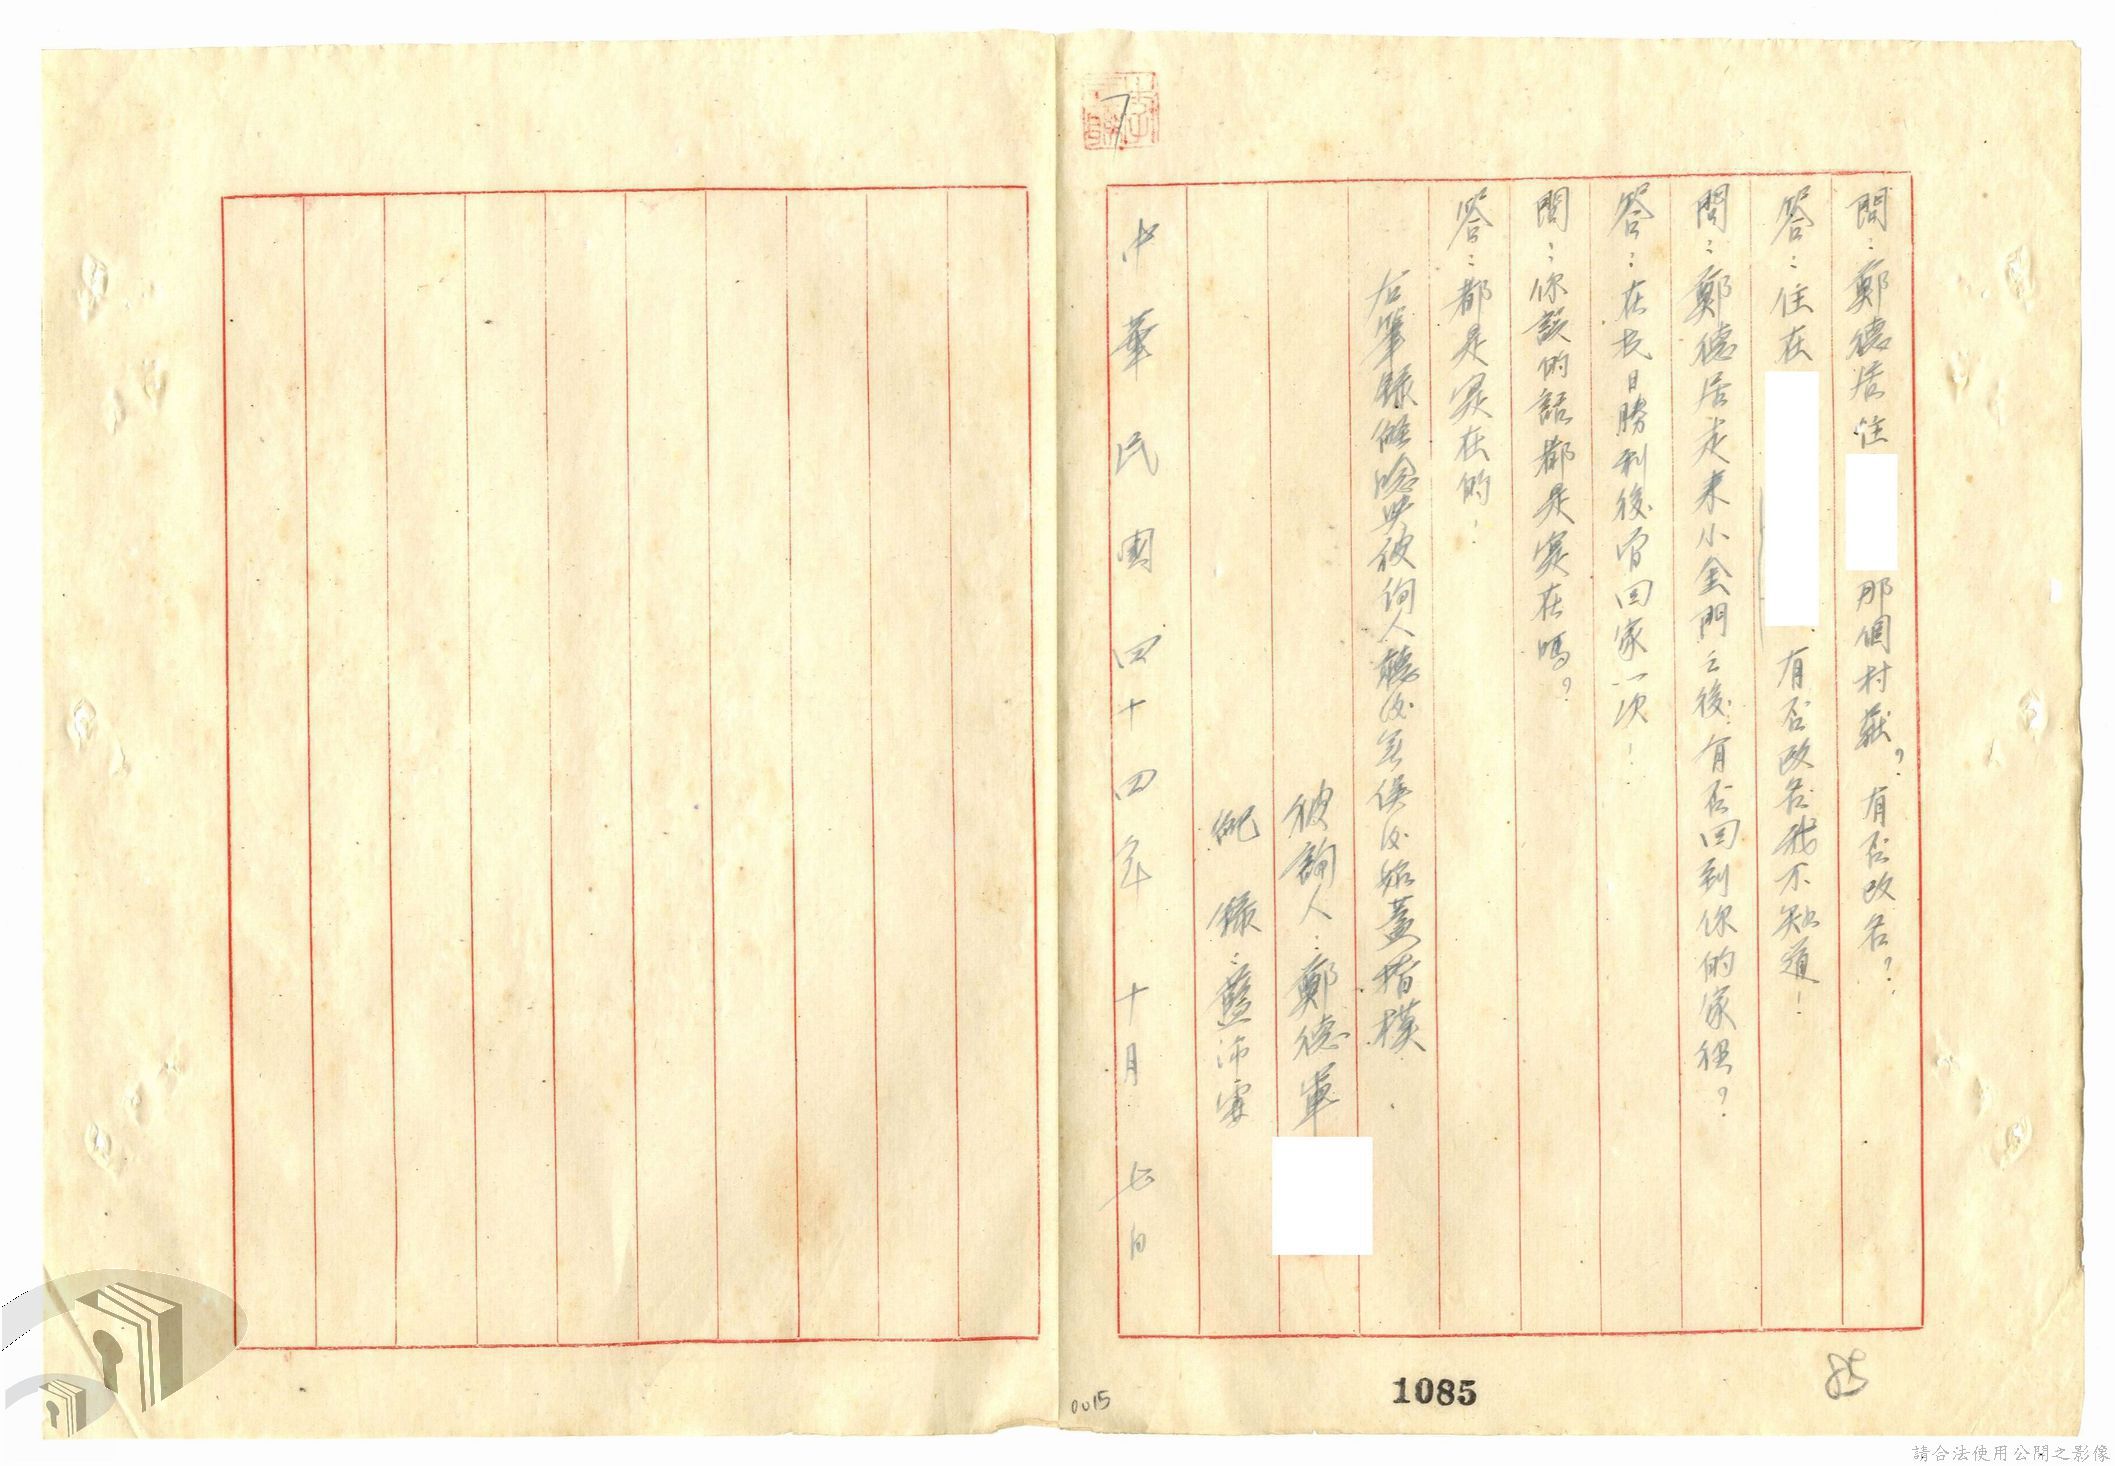 問：鄭德居住 那個村莊？有否改名？
答：住在 有否改名我不知道！
問：鄭德居走來小金門之後有否回到你的家裡？
答：在抗日勝利後曾回家一次！
問：你說的話都是實在嗎？
答：都是實在的！
右筆錄經唸與被詢人聽後無誤後始蓋指模
被詢人：鄭德軍
紀錄：藍沛
中華民國四十四年十月七日
1085
0015
85
7
請合法使用公開之影像